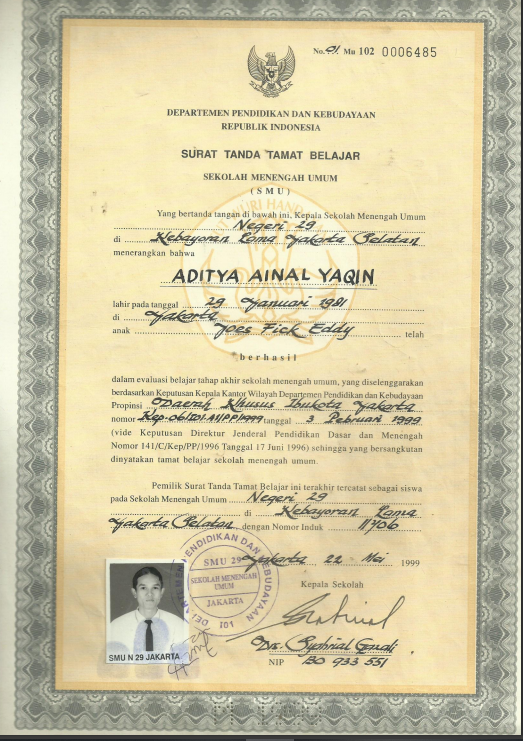 No. 01. Mu 102 0006485
DEPARTEMEN PENDIDIKAN DAN KEBUDAYAAN
REPUBLIK INDONESIA
SURAT TANDA TAMAT BELAJAR
SEKOLAH MENENGAH UMUM
( S M U )
Yang bertanda tangan di bawah ini, Kepala Sekolah Menengah Umum
Negeri 29
di Kebayoran Lama Jakarta Selatan
menerangkan bahwa
ADITYA AINAL YAQIN
lahir pada tanggal 29 Januari 1981
di Jakarta
anak Joes Fick Eddy telah
berhasil
dalam evaluasi belajar tahap akhir sekolah menengah umum, yang diselenggarakan
berdasarkan Keputusan Kepala Kantor Wilayah Departemen Pendidikan dan Kebudayaan
Propinsi Daerah Khusus Ibukota Jakarta
nomor tanggal 3 Pebruari 1999
(vide Keputusan Direktur Jenderal Pendidikan Dasar dan Menengah
Nomor 141/C/Kep/PP/1996 Tanggal 17 Juni 1996) sehingga yang bersangkutan
dinyatakan tamat belajar sekolah menengah umum.
Pemilik Surat Tanda Tamat Belajar ini terakhir tercatat sebagai siswa
pada Sekolah Menengah Umum Negeri 29
di Kebayoran Lama
Jakarta Selatan, dengan Nomor Induk
Jakarta, 22 Mei 1999
Kepala Sekolah
DEPARTEMEN PENDIDIKAN DAN KEBUDAYAAN
SMU 29
SEKOLAH MENENGAH
UMUM
JAKARTA
101
SMU N 29 JAKARTA
Drs. Syahrial
NIP 130 933 551